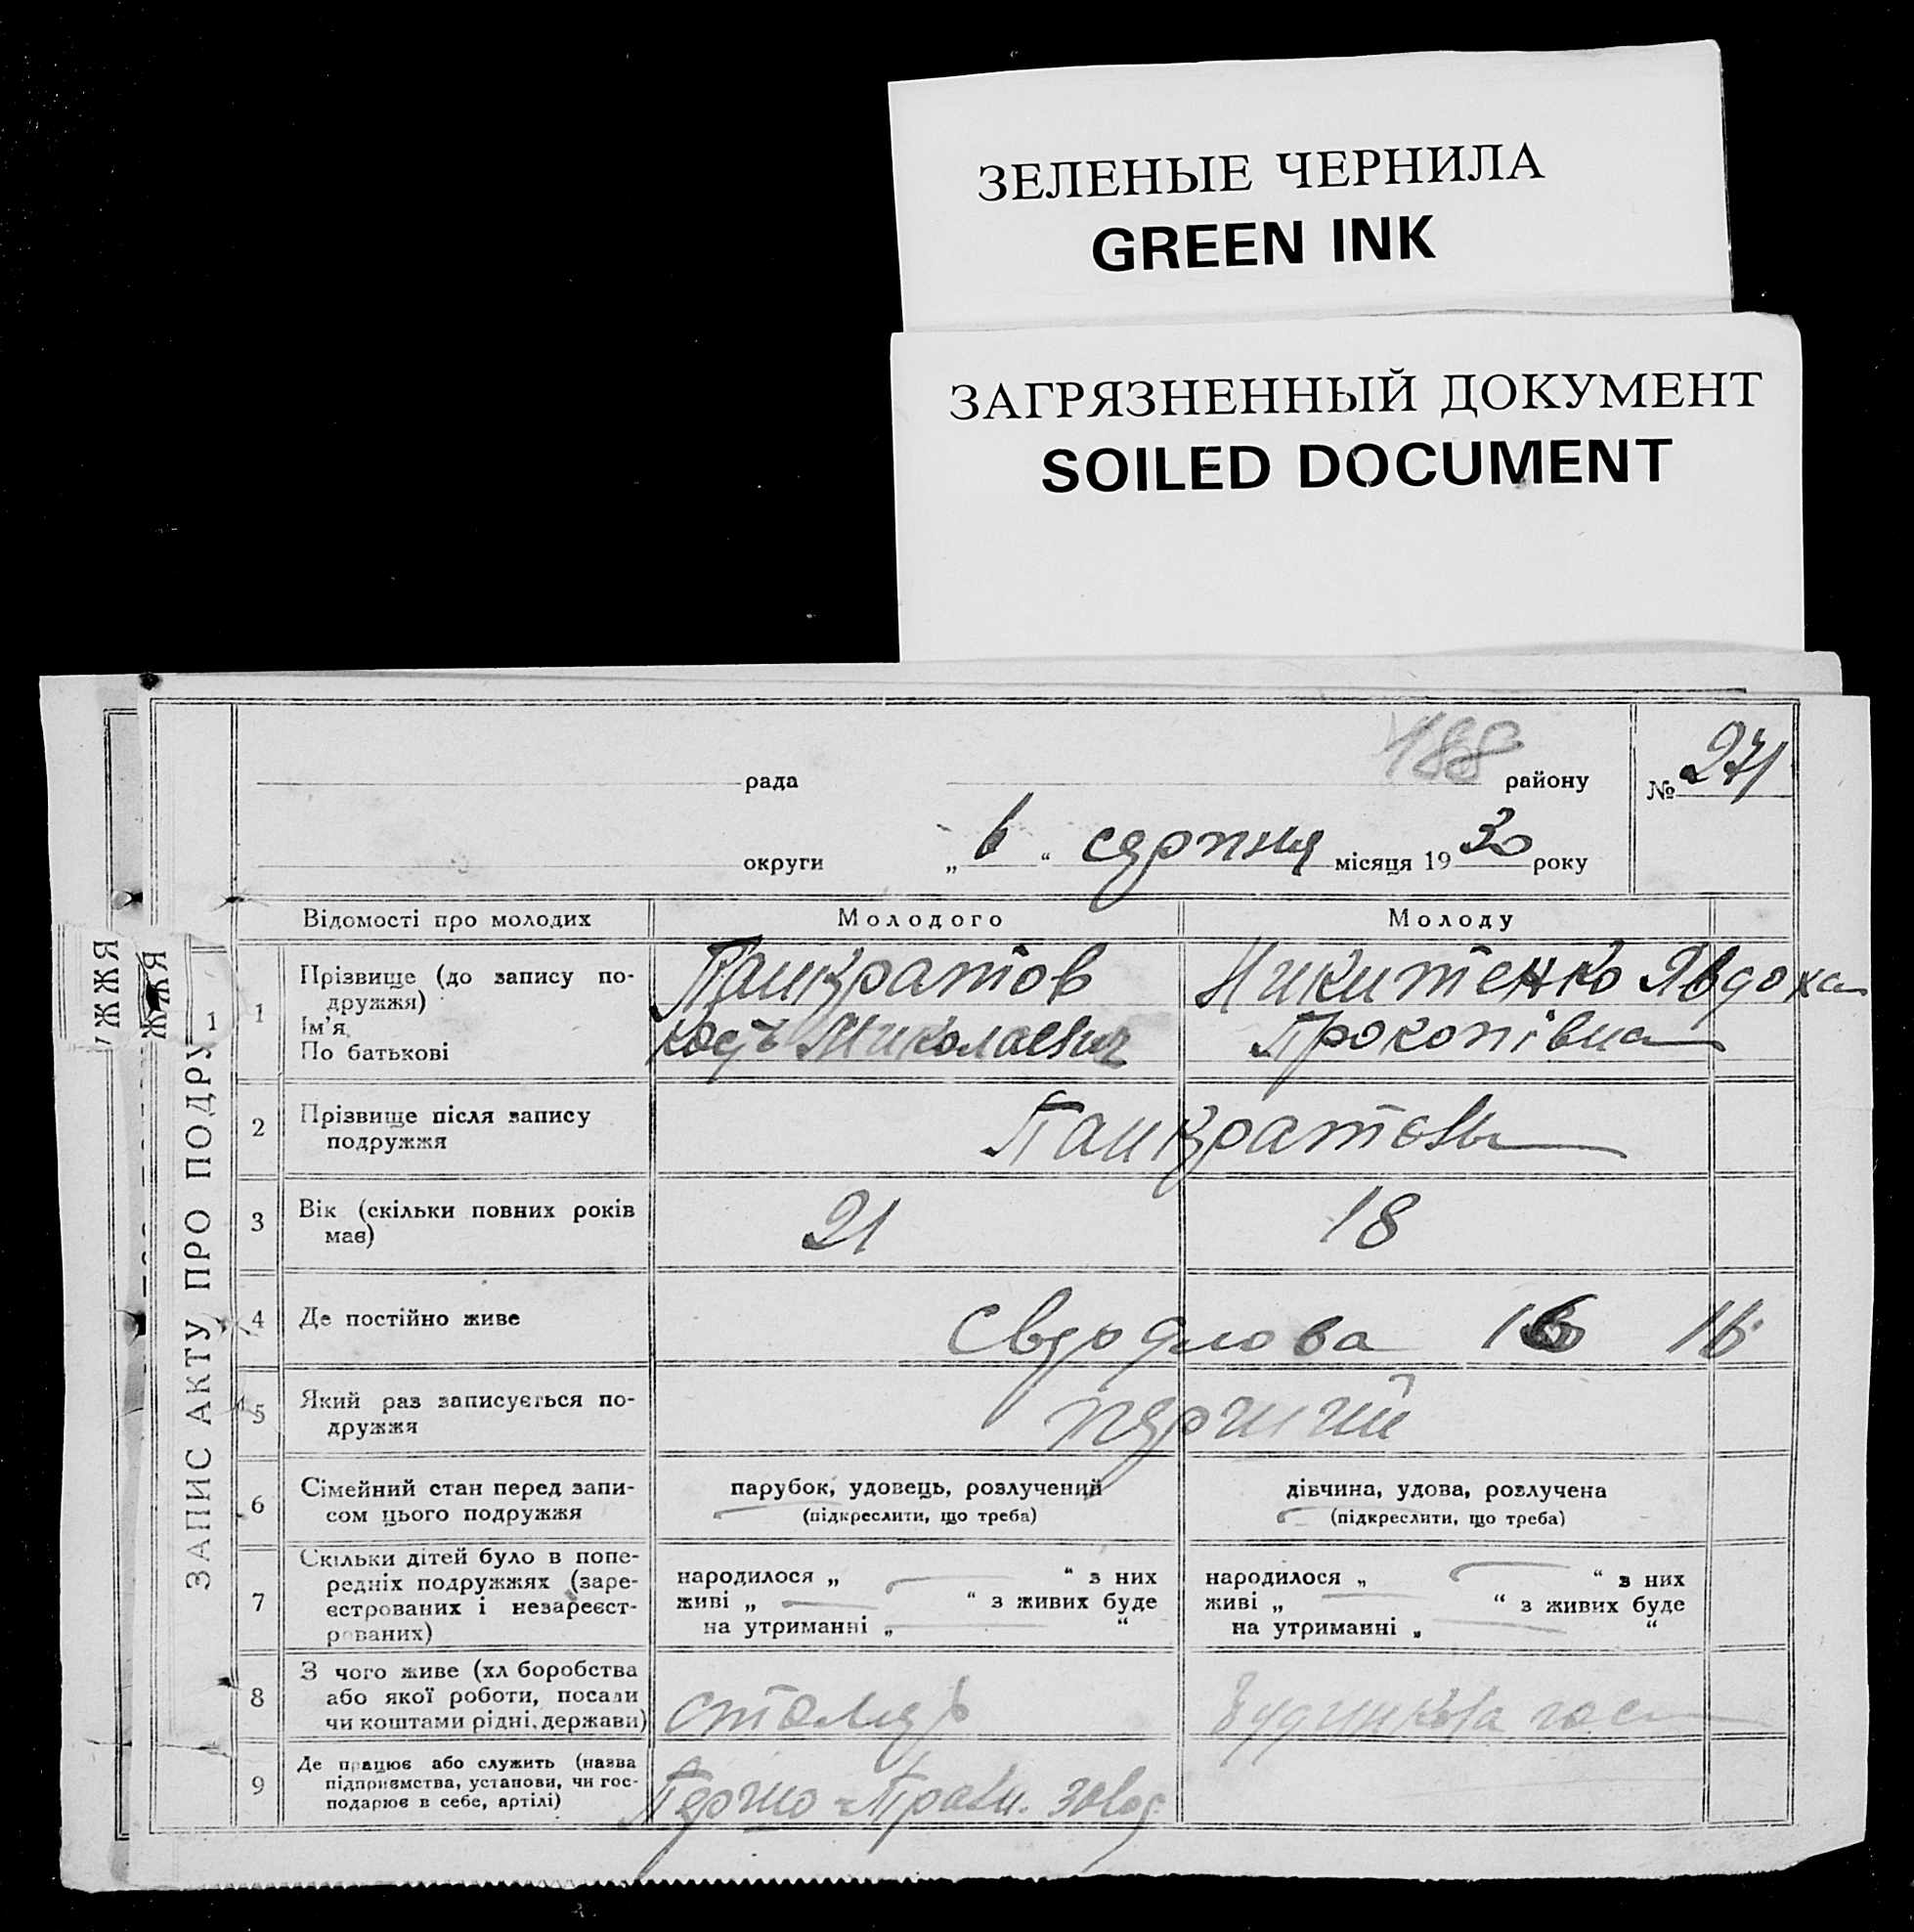 ЗЕЛЕНЫЕ ЧЕРНИЛА
GREEN INK
ЗАГРЯЗНЕННЫЙ ДОКУМЕНТ
SOILED DOCUMENT
488
рада району № 271
округи „ 6 “ серпня місяця 1930 року
ЖЖЯ
ЖЖЯ
ЗАПИС АКТУ ПРО ПОДРУ
1
Відомості про молодих Молодого Молоду
1 Прізвище (до запису по-
дружжя)
Ім’я
По батькові
Панкратов
Миколаевич
Никитенко Явдоха
Прокопівна
2 Прізвище після запису
подружжя
Панкратови
3 Вік (скільки повних років
має)
21 18
4 Де постійно живе
Свердлова 16 16
5 Який раз записується по-
дружжя
перший
6 Сімейний стан перед запи-
сом цього подружжя
парубок, удовець, розлучений
(підкреслити, що треба)
дівчина, удова, розлучена
(підкреслити, що треба)
7 Скільки дітей було в попе-
редніх подружжях (заре-
єстрованих і незареєст-
рованих)
народилося „ “ з них
живі „ “ з живих буде
на утриманні „ “
народилося „ “ з них
живі „ “ з живих буде
на утриманні „ “
8 З чого живе (хл боробства
або якої роботи, посади
чи коштами рідні, держави)
столяр
9 Де працює або служить (назва
підприємства, установи, чи гос-
подарює в себе, артілі)
Першо-Травн. завод